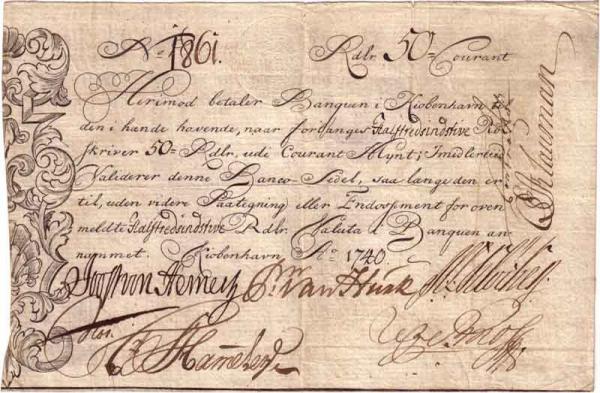 No 1861. Rdlr. 50= Courant
Herimod betaler Banquen i Kiøbenhavn til
den i hænde havende, naar forlanges Halftredsindstive Rdlr.
skriver 50= Rdlr, udi Courant Mynt; Imidlertid
Validerer denne Banco-Sedel, saa længe den er
til, uden videre Paategning eller Endossement for oven
meldte Halftredsindstive Rdlr. Valuta i Banquen an-
nammet. Kiøbenhavn Ao 1740.
Joost von Hemert
van Hurk